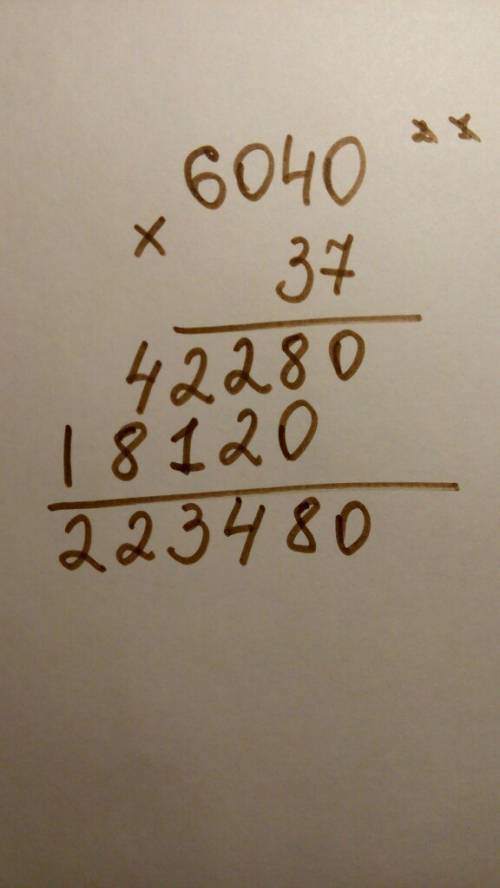 6040
× 37
42280
18120
223480